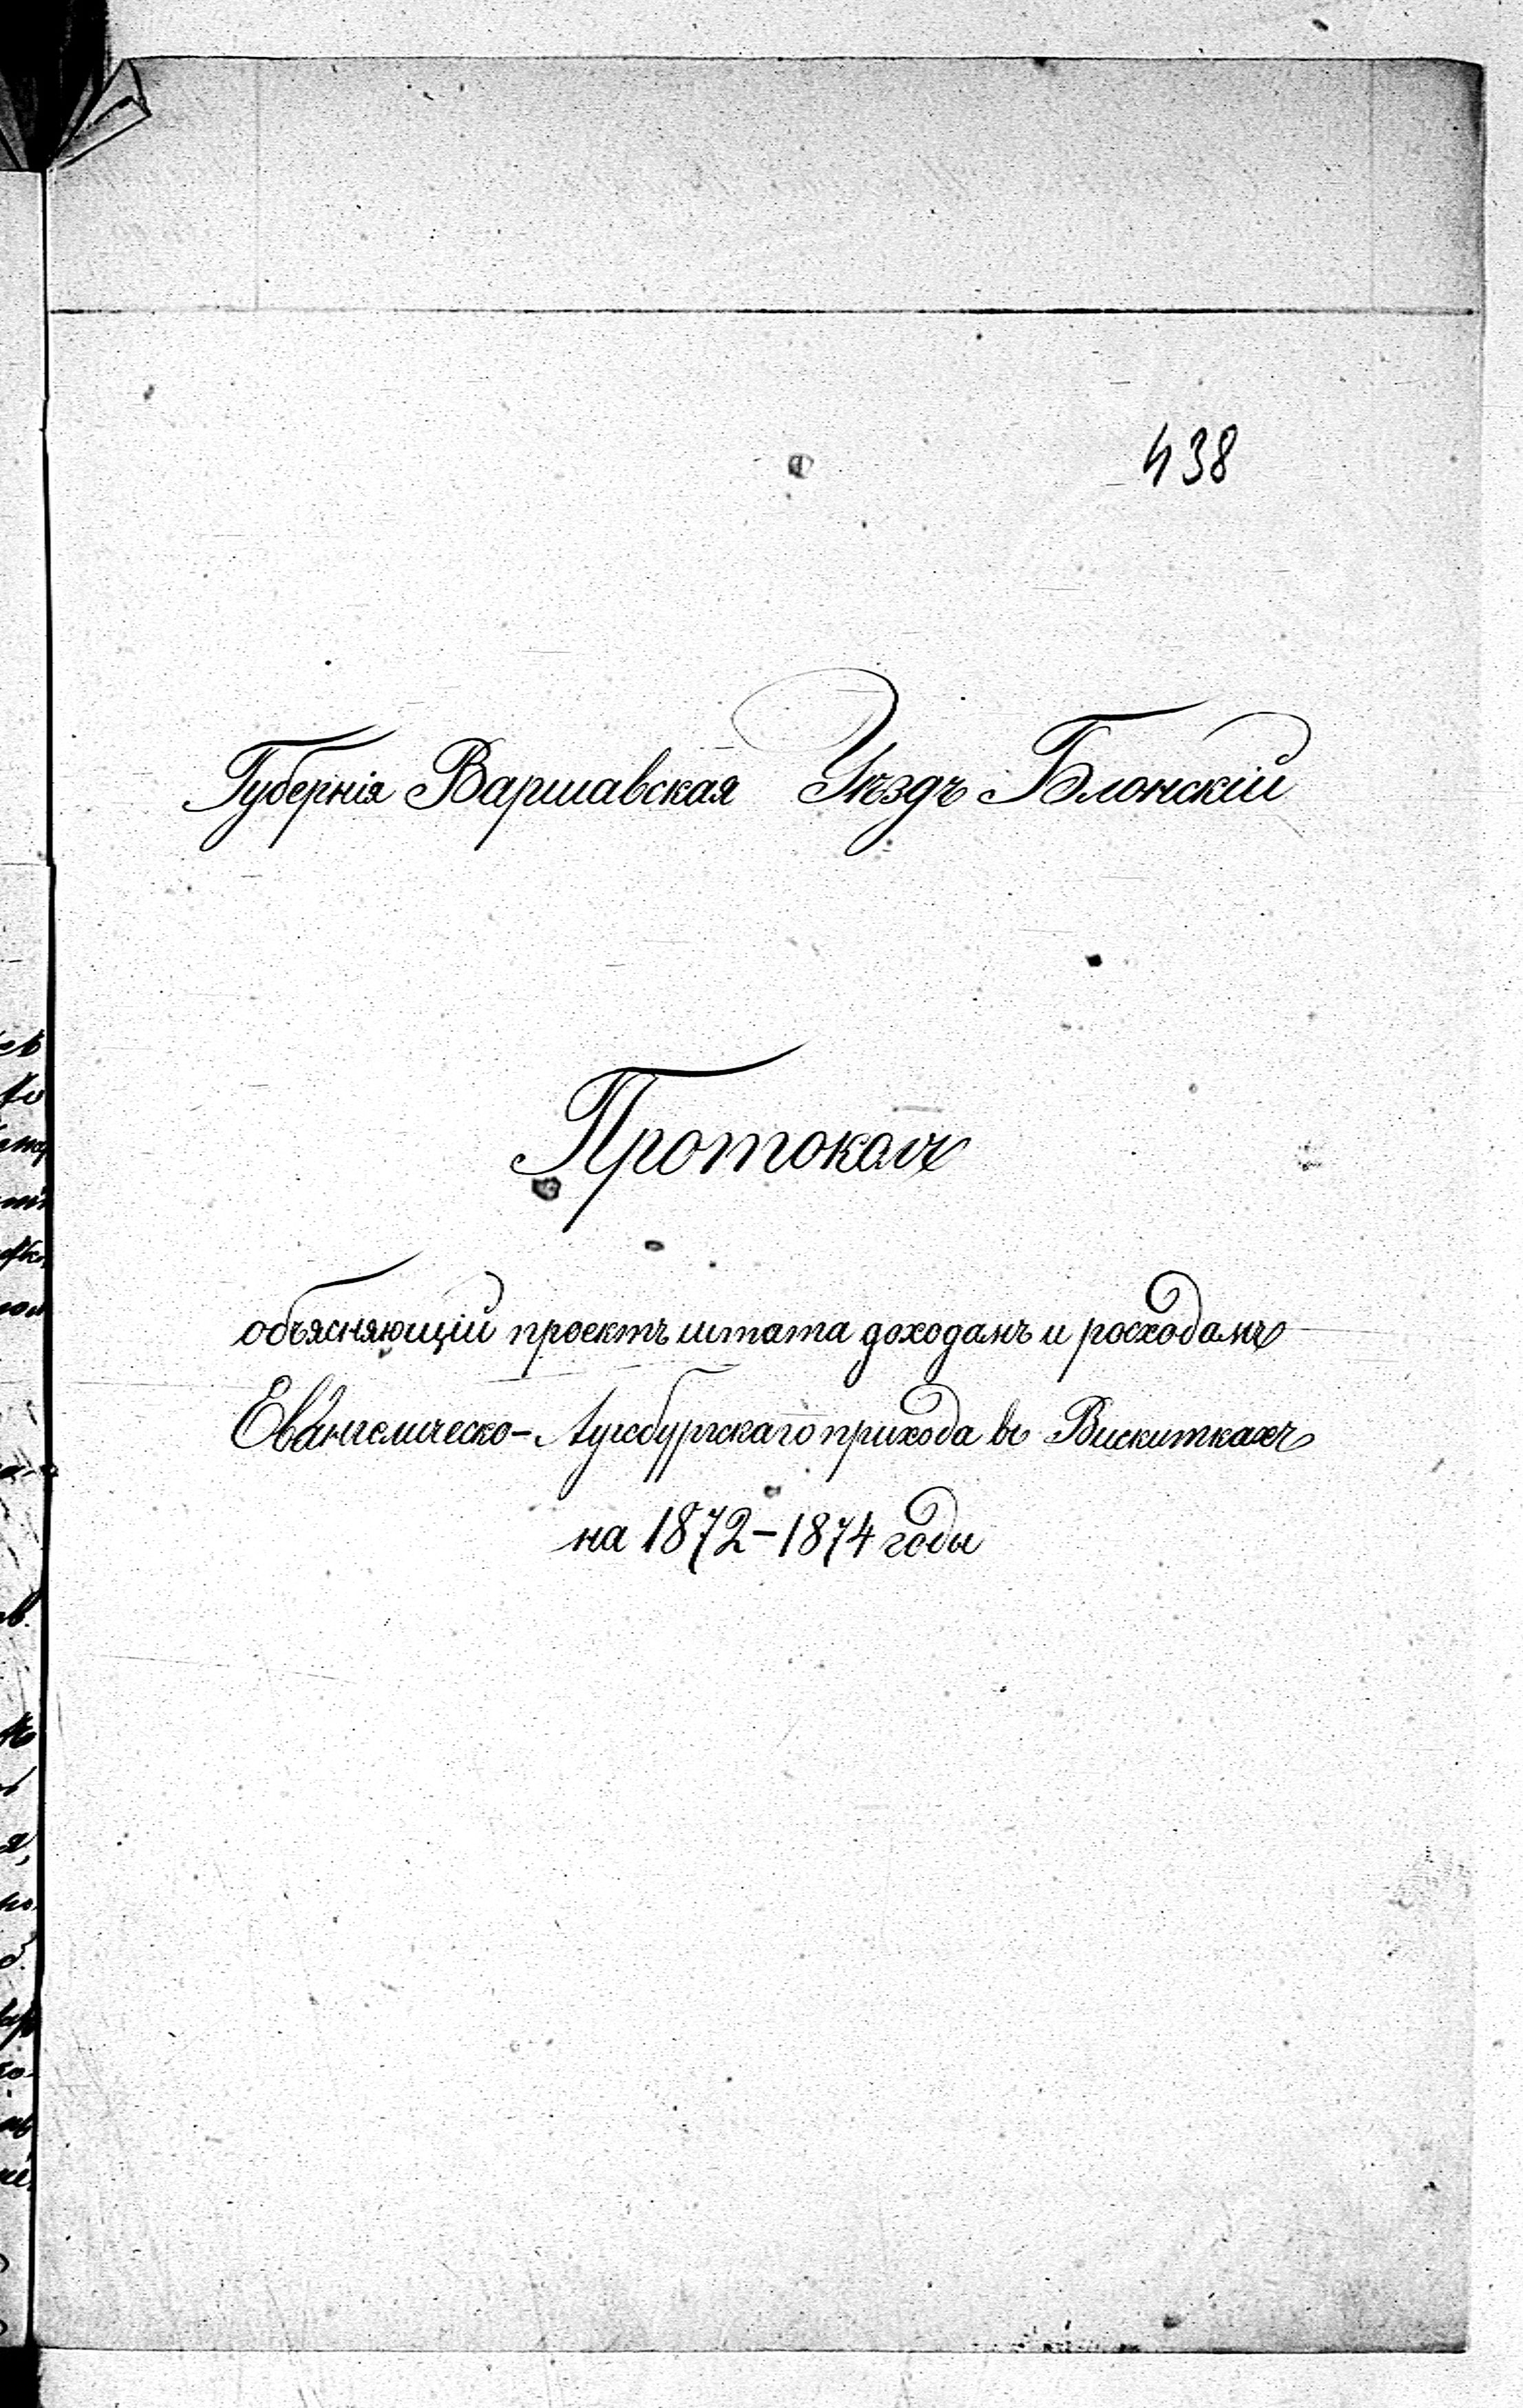 438
Губернія Варшавская Уѣздъ Блонскій
Протоколъ
объясняющій проектъ штата доходамъ и росходамъ
Евангелическо-Аугсбургскаго прихода въ Вискиткахъ
на 1872-1874 годы